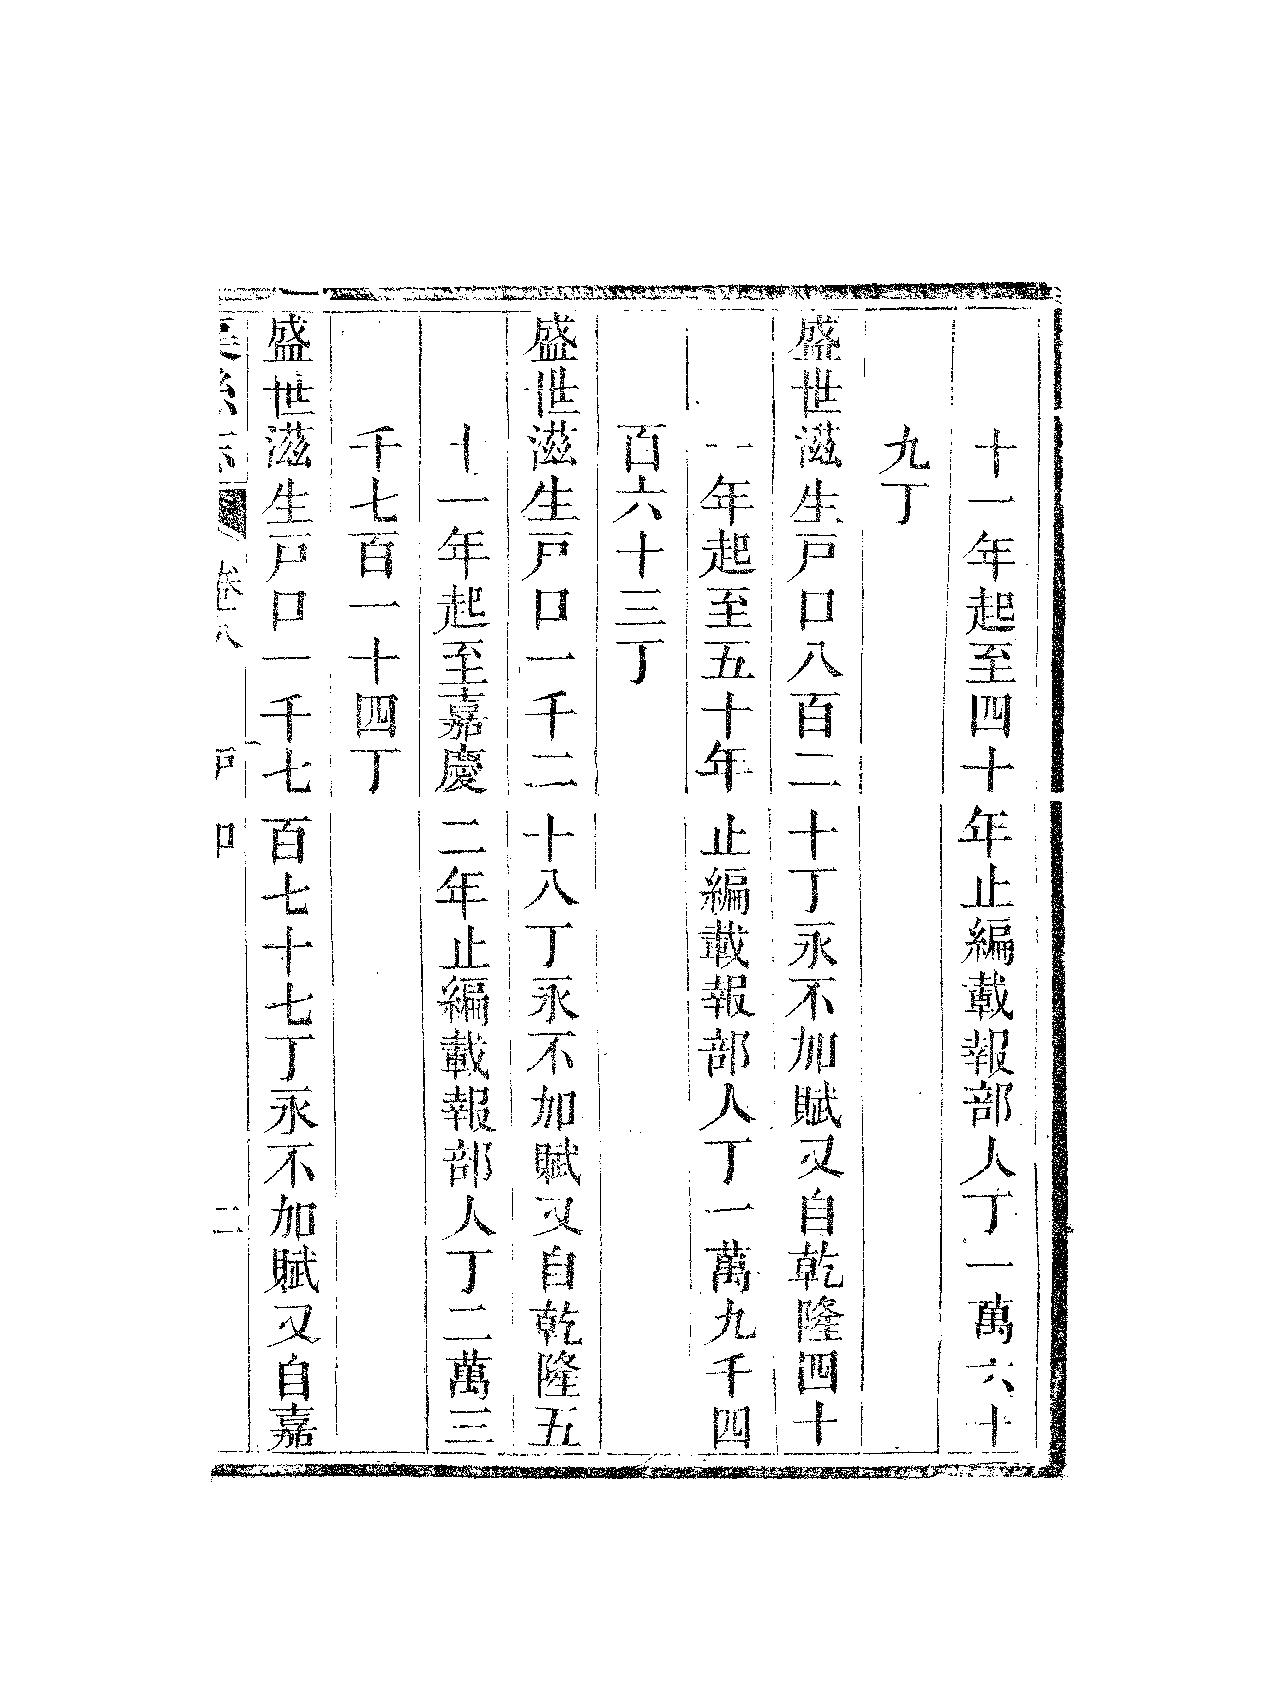 十一年起至四十年止編載報部人丁一萬六十
九丁
盛世滋生戸口八百二十丁永不加賦又自乾隆四十
一年起至五十年止編載報部人丁一萬九千四
百六十三丁
盛世滋生戸口一千二十八丁永不加賦又自乾隆五
十一年起至嘉慶二年止編載報部人丁二萬三
千七百一十四丁
盛世滋生戸口一千七百七十七丁永不加賦又自嘉
卷八 戸口 二